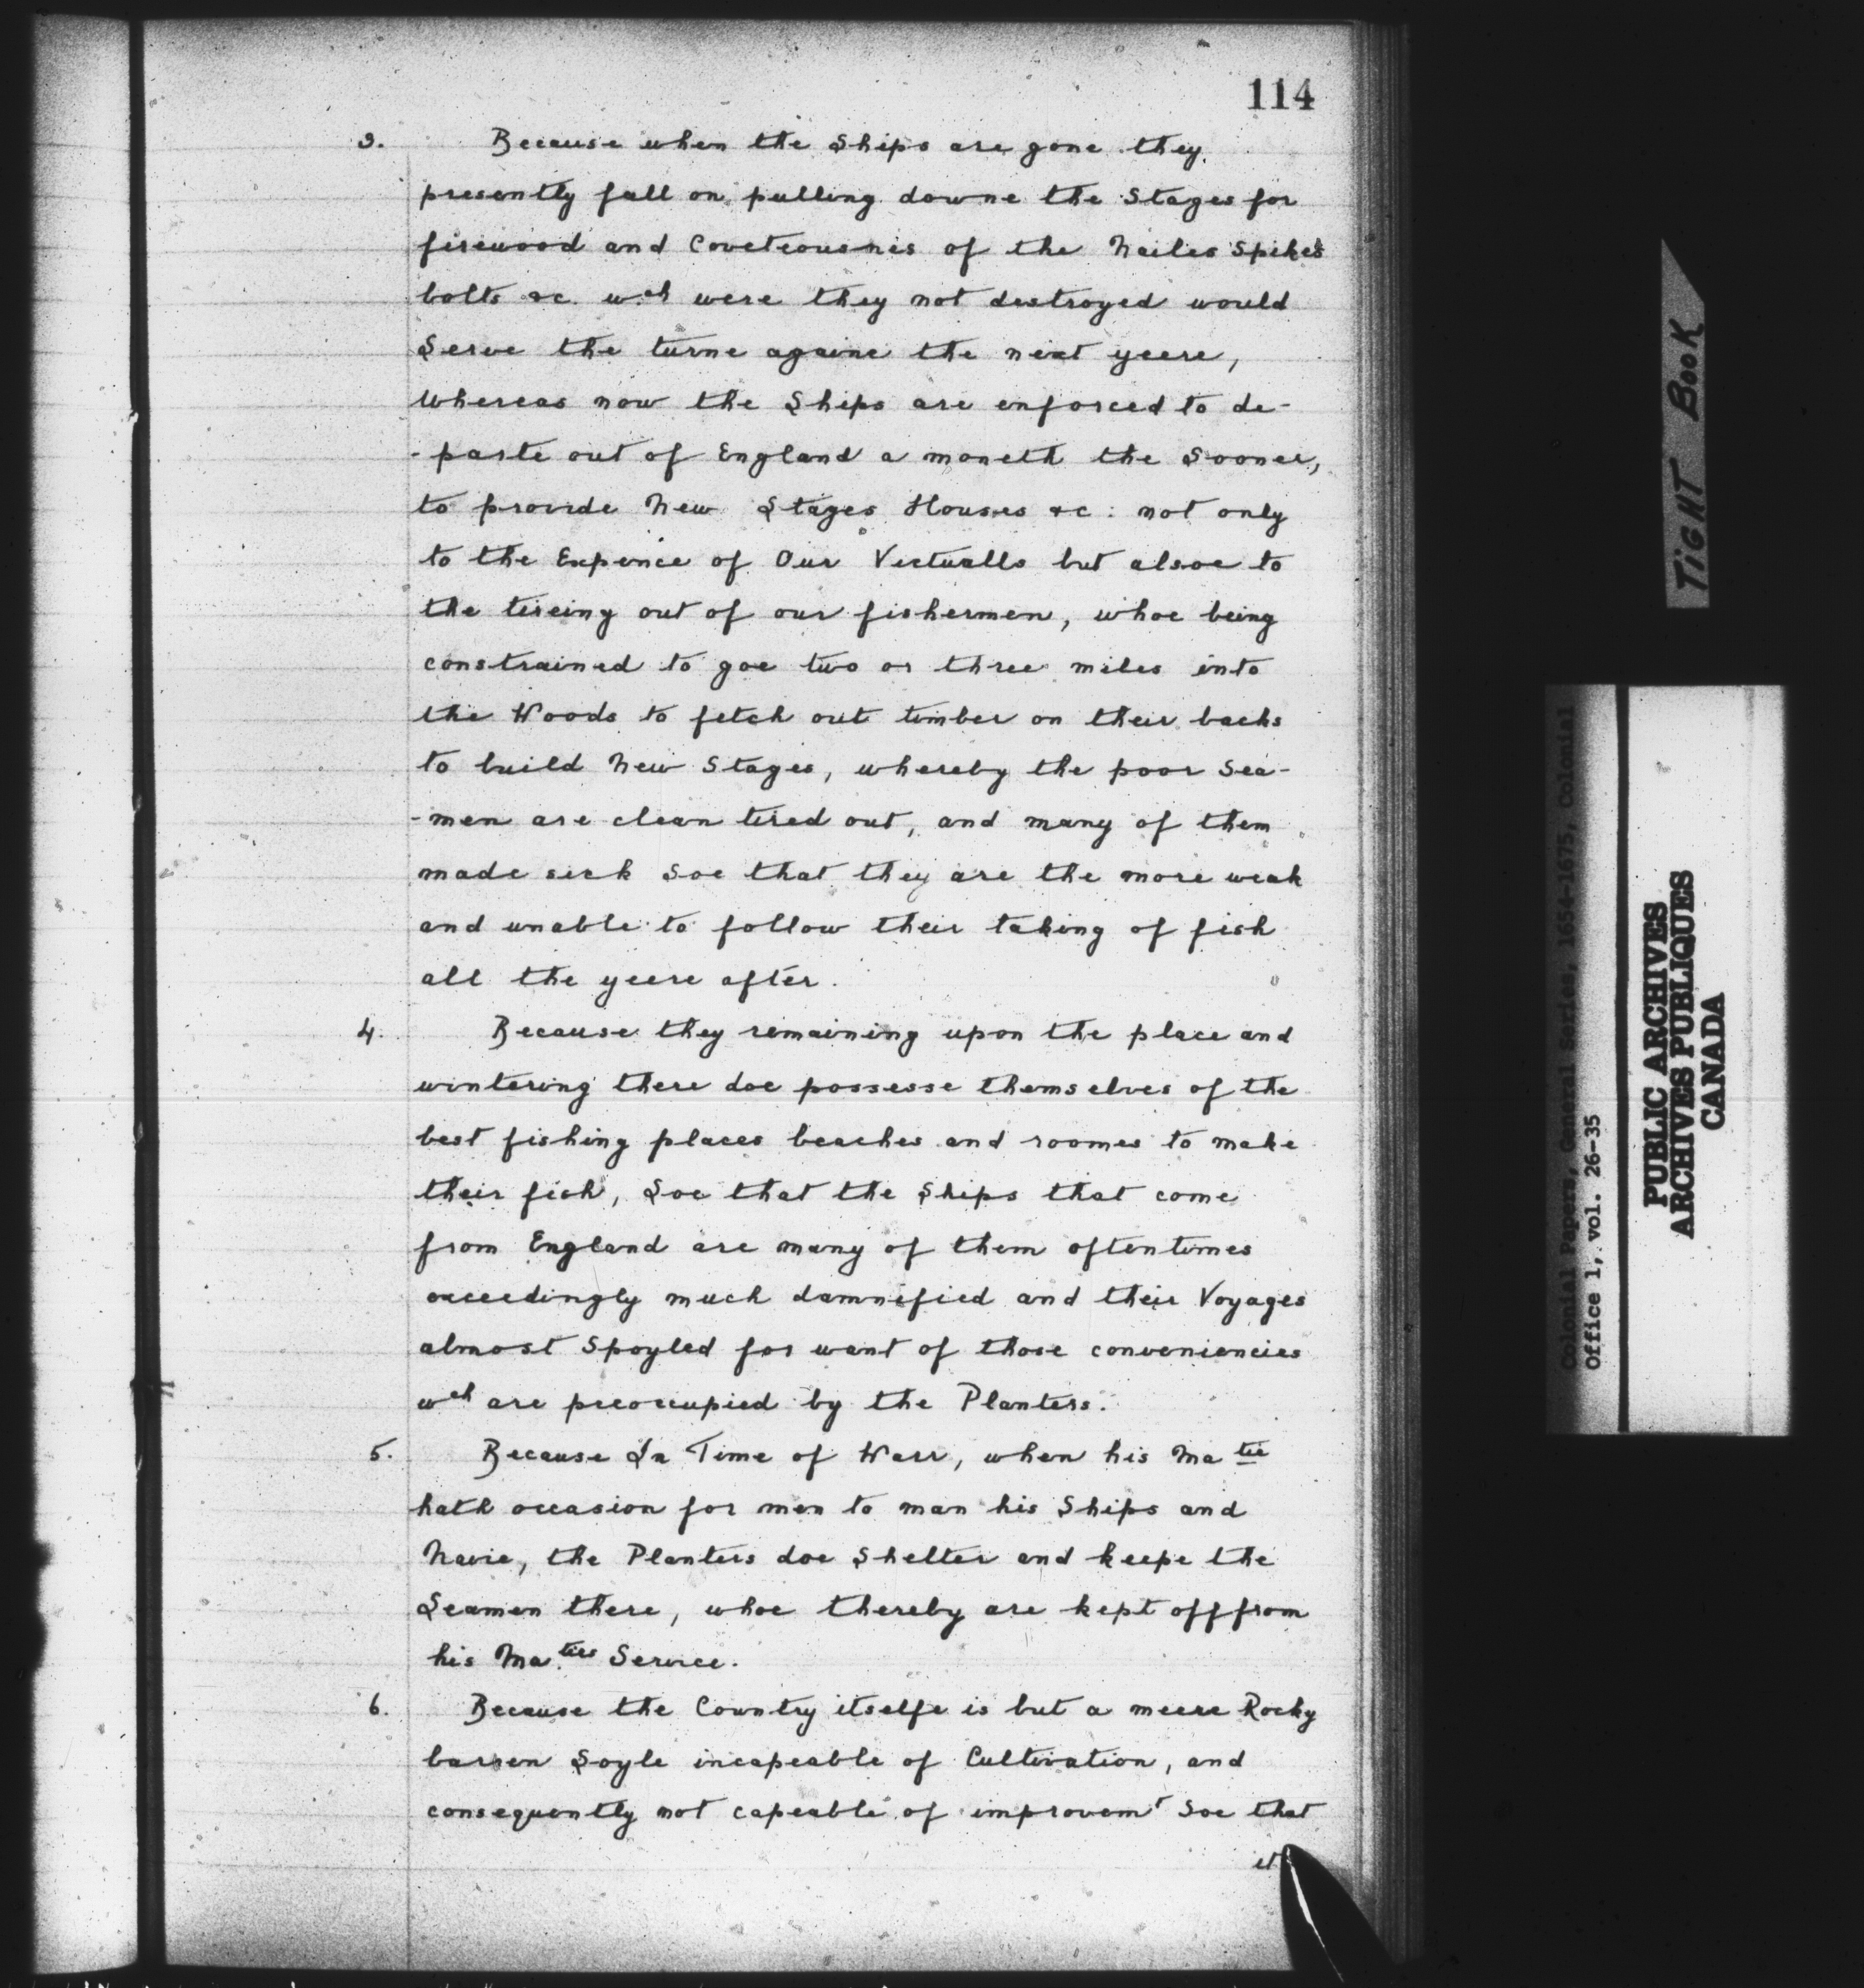 114
3. Because when the Ships are gone they
presently fall on pulling downe the Stages for
firewood and Coveteousnes of the Nailes Spikes
bolts &c. wch were they not destroyed would
Serve the turne againe the next yeere,
Whereas now the Ships are enforced to de-
-parte out of England a moneth the Sooner,
to provide New Stages Houses &c: not only
to the Expence of Our Victualls but alsoe to
the tireing out of our fishermen, whoe being
constrained to goe two or three miles into
the Woods to fetch out timber on their backs
to build New Stages, whereby the poor Sea-
-men are clean tired out, and many of them
made sick Soe that they are the more weak
and unable to follow their taking of fish
all the yeere after.
4. Because they remaining upon the place and
wintering there doe possesse themselves of the
best fishing places beaches and roomes to make
their fish, Soe that the Ships that come
from England are many of them oftentimes
exceedingly much damnified and their Voyages
almost Spoyled for want of those conveniencies
wch are preoccupied by the Planters.
5. Because In Time of Warr, when his Matie
hath occasion for men to man his Ships and
Navie, the Planters doe Shelter and keepe the
Seamen there, whoe thereby are kept off from
his Maties Service.
6. Because the Country itselfe is but a meere Rocky
barren Soyle incapeable of Cultivation, and
consequently not capeable of improvemt Soe that
it
TiGHT BOOK
Colonial Papers, General Series, 1654-1675, Colonial
Office 1, vol. 26-35
PUBLIC ARCHIVES
ARCHIVES PUBLIQUES
CANADA